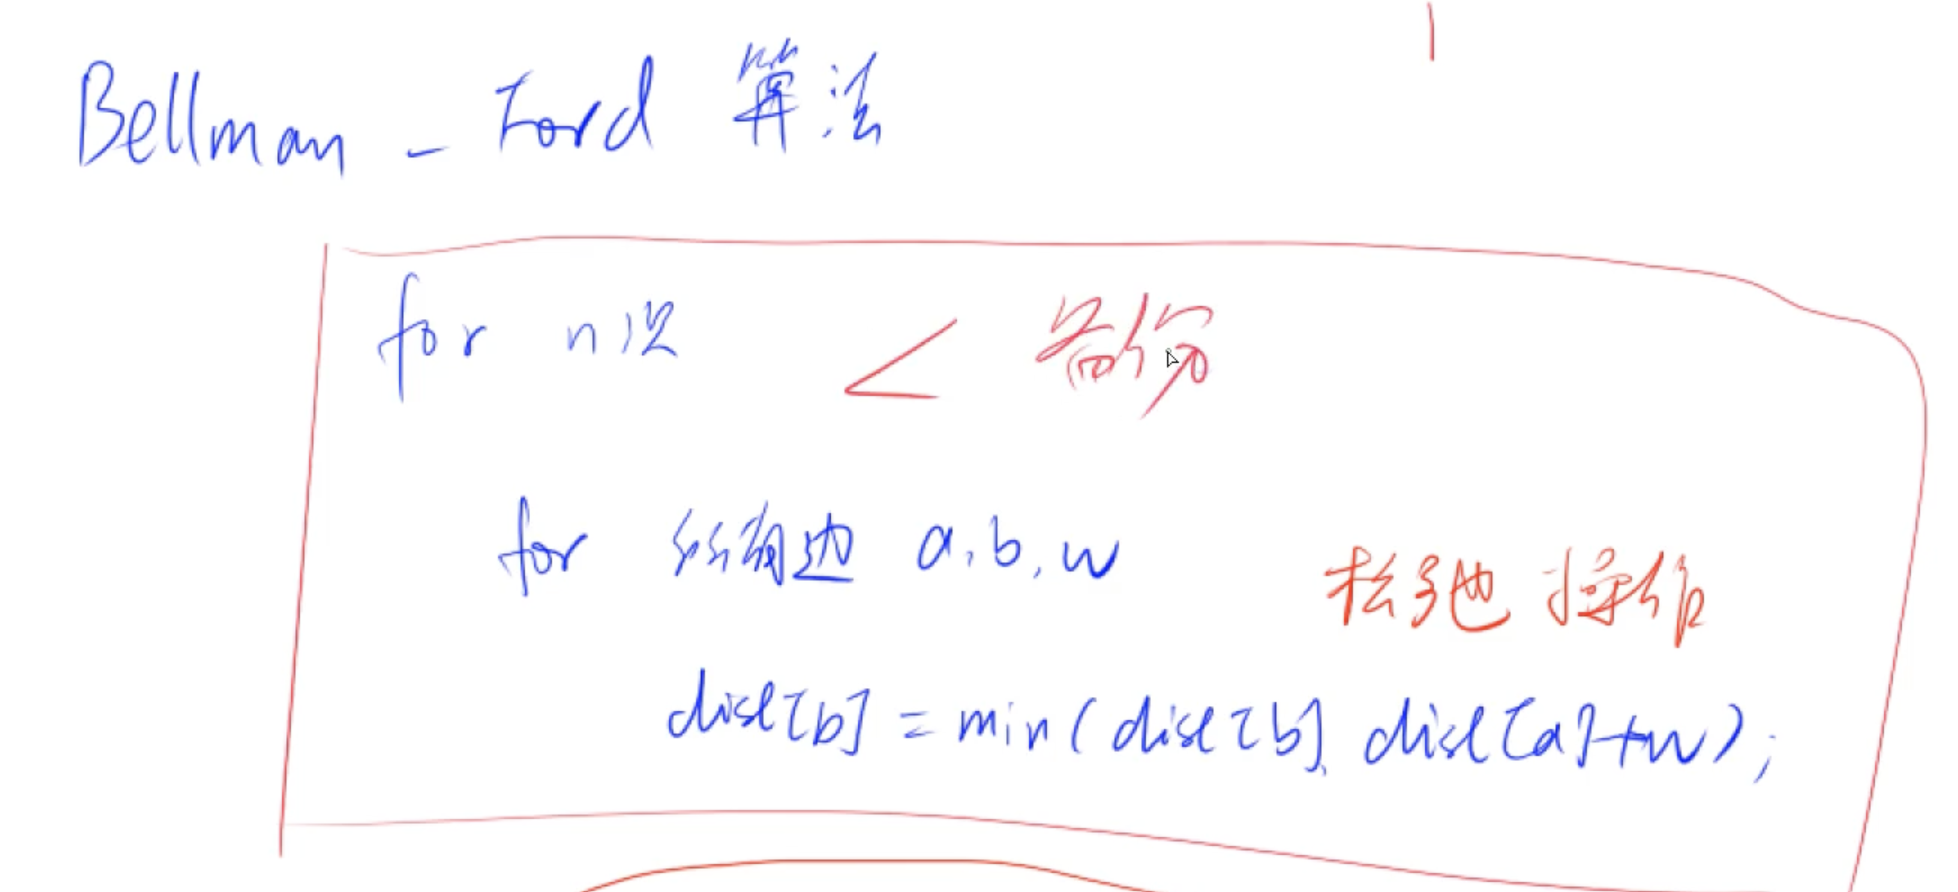 Bellman - Ford 算法
for n次 < 备份
for 所有边 a,b,w
松弛操作
dist[b] = min(dist[b], dist[a]+w);